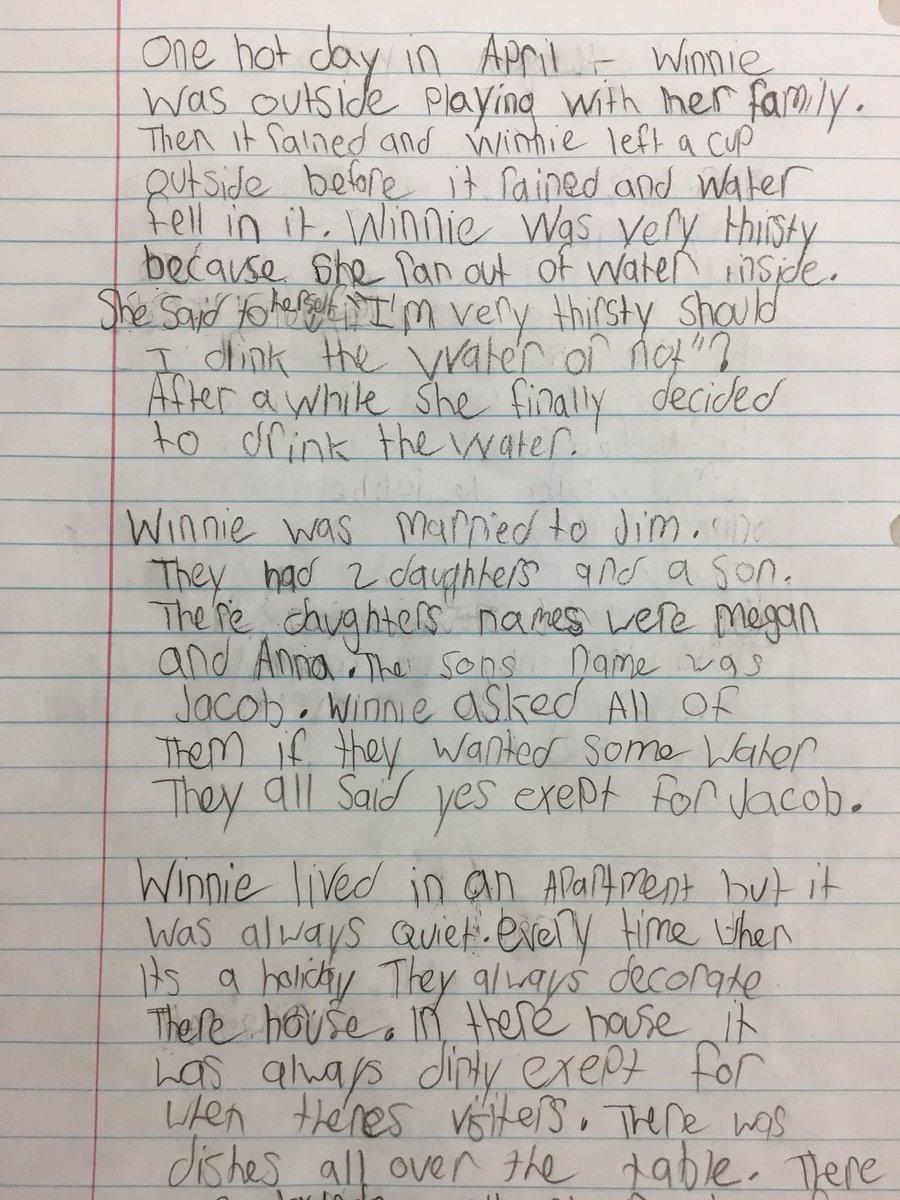 One hot day in April - Winnie
was outside playing with her family.
Then it rained and Winnie left a cup
outside before it rained and water
fell in it. Winnie was very thirsty
because she ran out of water inside.
She said to herself "I'm very thirsty should
I drink the water or not"?
After a while she finally decided
to drink the water.
Winnie was married to Jim.
They had 2 daughters and a son.
There daughters names were Megan
and Anna. The sons name was
Jacob. Winnie asked All of
Them if they wanted some water
They all said yes exept for Jacob.
Winnie lived in an Apartment but it
was always quiet. every time when
Its a holiday They always decorate
There house. In there house it
was always dirty exept for
when theres visiters. There was
dishes all over the table. There